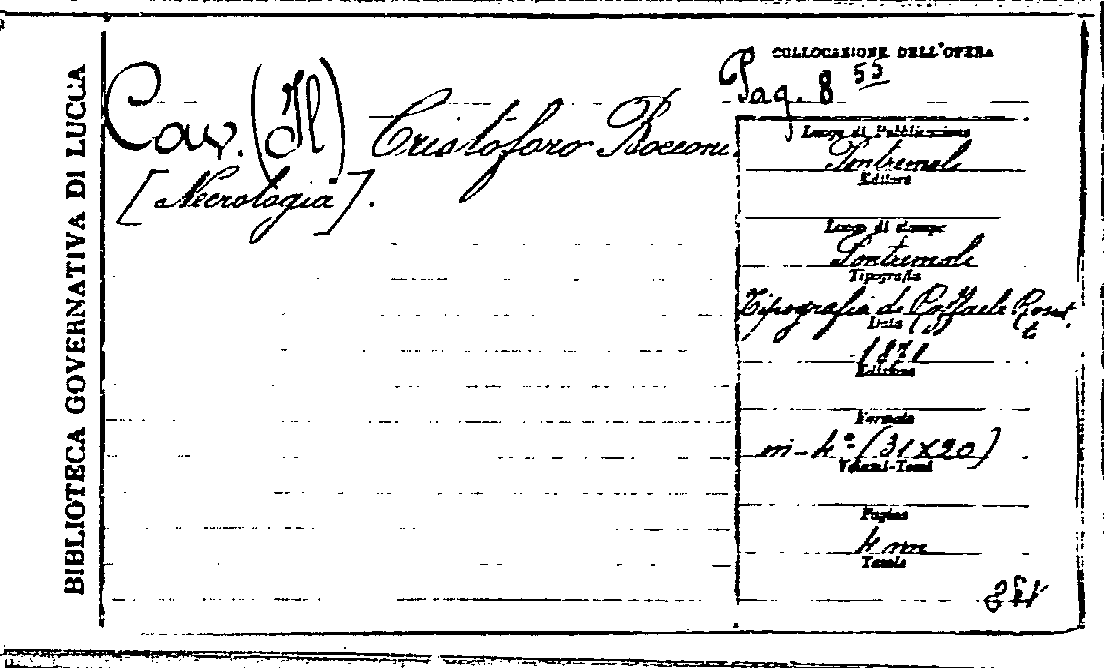 BIBLIOTECA GOVERNATIVA DI LUCCA
Cav. (Il) Cristoforo Bocconi
[Necrologia].
COLLOCAZIONE DELL'OPERA
Pag. 8 55
Luogo di Pubblicazione
Pontremoli
Editore
Luogo di stampa
Pontremoli
Tipografia
Tipografia di Raffaele Rossetti
Data
1871
Edizione
Formato
in-4º (31x20)
Volumi-Tomi
Pagine
4 nn
Tavole